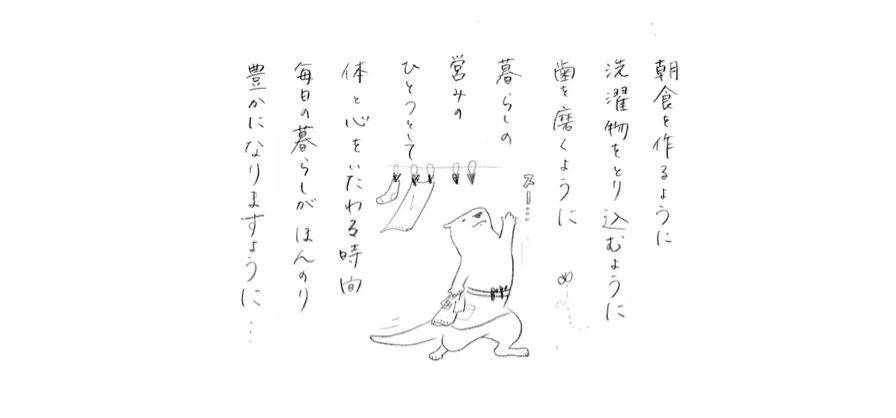 朝食を作るように
洗濯物をとり込むように
歯を磨くように
暮らしの
営みの
ひとつとして
体と心をいたわる時間
毎日の暮らしがほんのり
豊かになりますように…
スー…